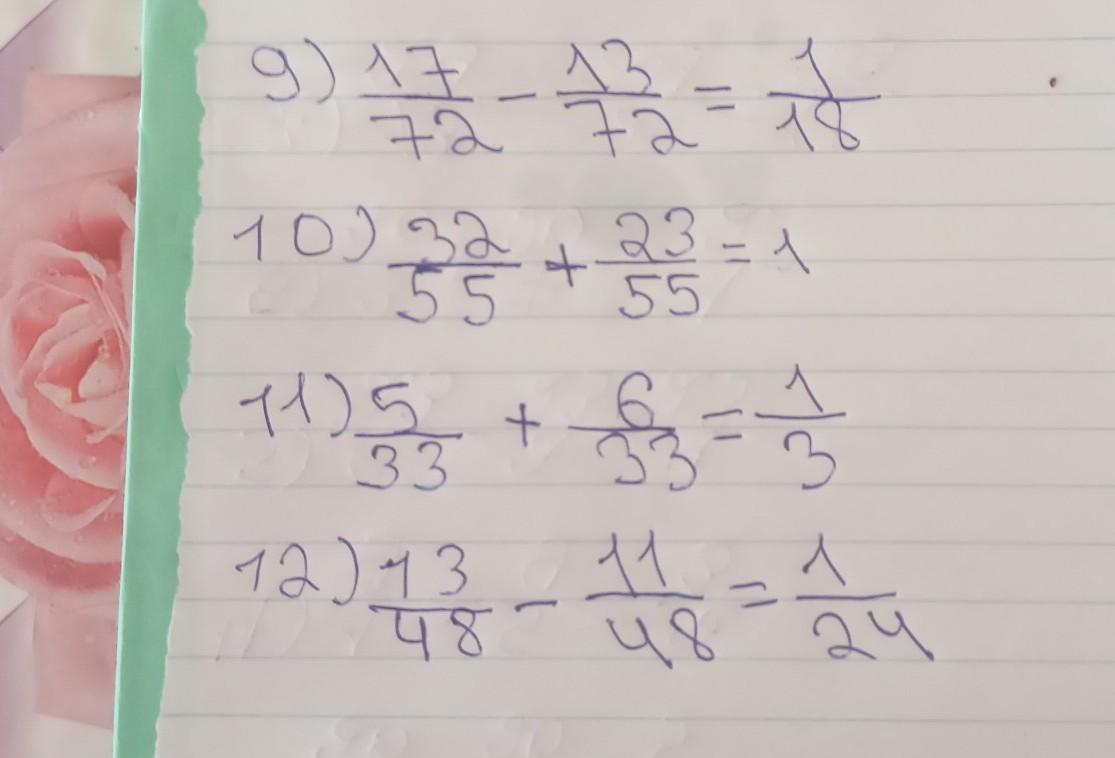 9) 17/72 - 13/72 = 1/18
10) 32/55 + 23/55 = 1
11) 5/33 + 6/33 = 1/3
12) 13/48 - 11/48 = 1/24